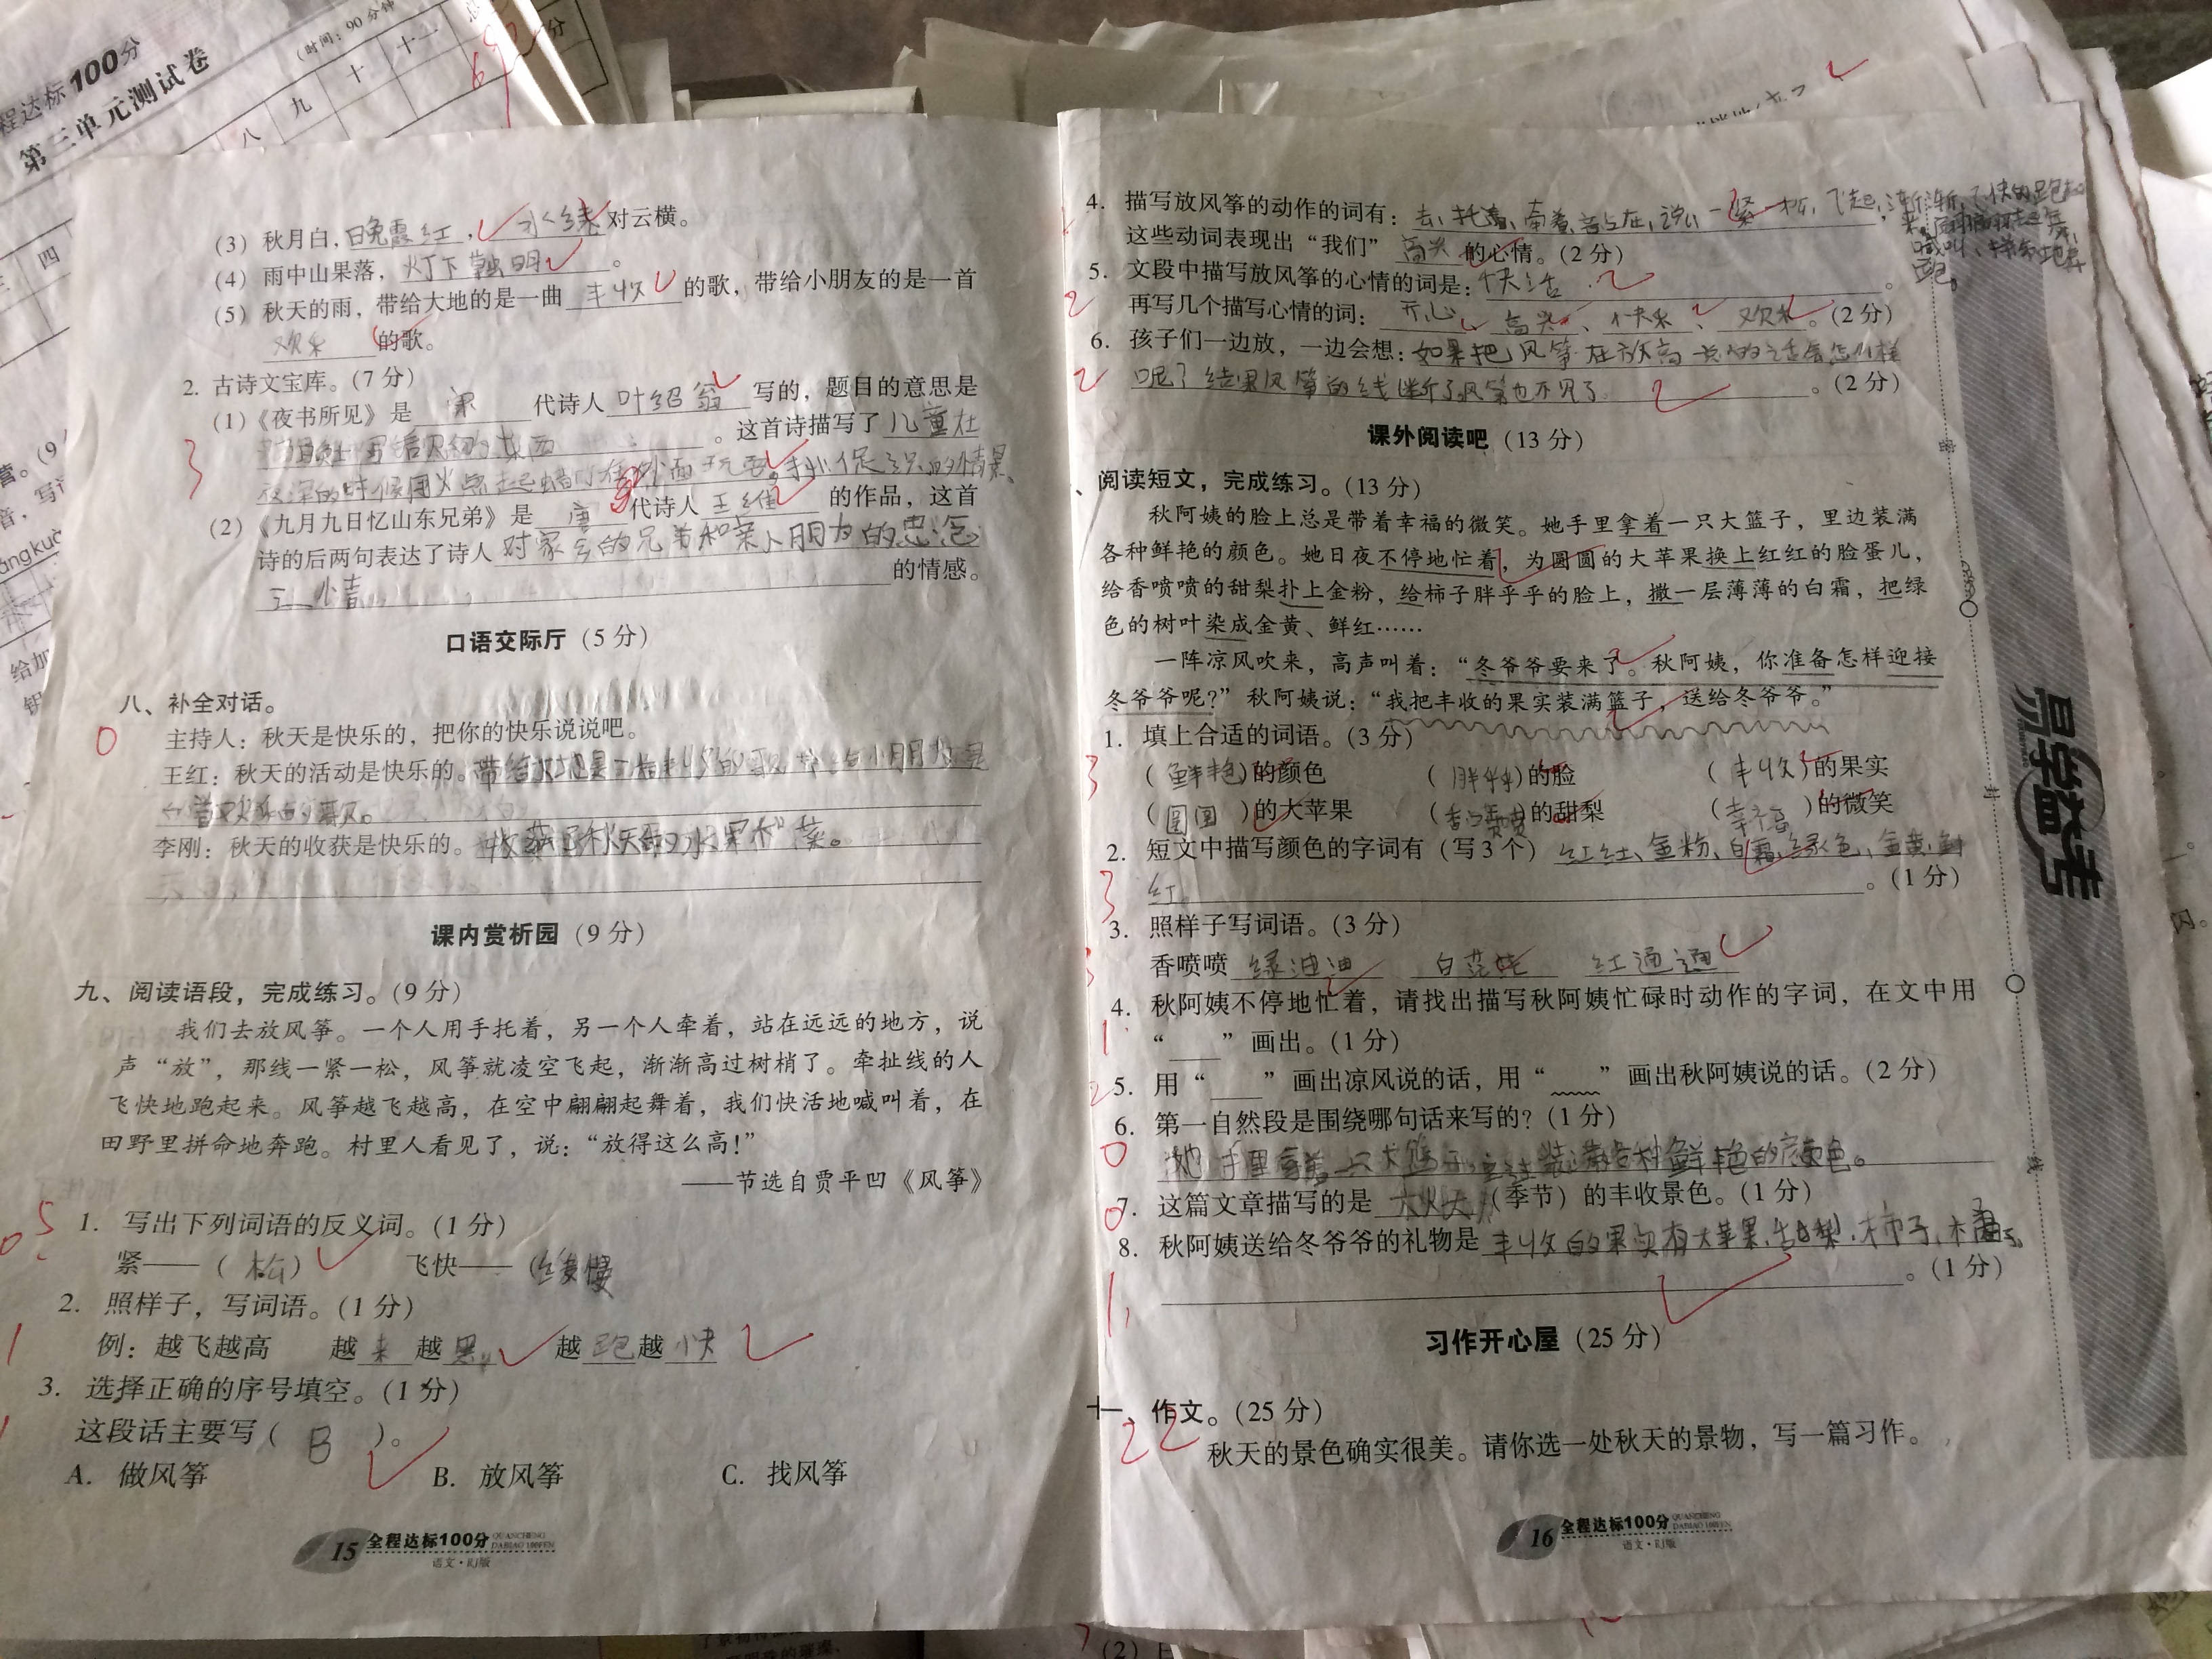 程达标100分
第三单元测试卷
(时间：90分钟
八 九 十 十二
分
四
(3) 秋月白，晚霞红，水绿对云横。
(4) 雨中山果落，灯下 。
(5) 秋天的雨，带给大地的是一曲丰收的歌，带给小朋友的是一首
欢乐的歌。
2. 古诗文宝库。(7分)
(1)《夜书所见》是宋代诗人叶绍翁写的，题目的意思是
。这首诗描写了儿童在
(2)《九月九日忆山东兄弟》是唐代诗人王维的作品，这首
诗的后两句表达了诗人对家乡的兄弟和亲人朋友的思念
之情的情感。
口语交际厅 (5分)
八、补全对话。
0
主持人：秋天是快乐的，把你的快乐说说吧。
王红：秋天的活动是快乐的。
李刚：秋天的收获是快乐的。
课内赏析园 (9分)
九、阅读语段，完成练习。(9分)
我们去放风筝。一个人用手托着，另一个人牵着，站在远远的地方，说
声“放”，那线一紧一松，风筝就凌空飞起，渐渐高过树梢了。牵扯线的人
飞快地跑起来。风筝越飞越高，在空中翩翩起舞着，我们快活地喊叫着，在
田野里拼命地奔跑。村里人看见了，说：“放得这么高！”
——节选自贾平凹《风筝》
1. 写出下列词语的反义词。(1分)
紧——（松） 飞快——（缓慢
2. 照样子，写词语。(1分)
例：越飞越高 越来越黑 越跑越快
3. 选择正确的序号填空。(1分)
这段话主要写（B）。
A. 做风筝 B. 放风筝 C. 找风筝
15 全程达标100分 QUANCHENG DABIAO 100FEN
语文·RJ版
4. 描写放风筝的动作的词有：去、托着、牵着、站在、说、一紧一松、飞起、渐渐、飞快的跑起
这些动词表现出“我们”高兴的心情。(2分)
5. 文段中描写放风筝的心情的词是：快活。
再写几个描写心情的词：开心、高兴、快乐、欢乐。(2分)
6. 孩子们一边放，一边会想：如果把风筝在放高一点的话会怎么样
呢？结果风筝的线断了风筝也不见了。(2分)
课外阅读吧 (13分)
、阅读短文，完成练习。(13分)
秋阿姨的脸上总是带着幸福的微笑。她手里拿着一只大篮子，里边装满
各种鲜艳的颜色。她日夜不停地忙着，为圆圆的大苹果换上红红的脸蛋儿，
给香喷喷的甜梨扑上金粉，给柿子胖乎乎的脸上，撒一层薄薄的白霜，把绿
色的树叶染成金黄、鲜红……
一阵凉风吹来，高声叫着：“冬爷爷要来了。秋阿姨，你准备怎样迎接
冬爷爷呢？”秋阿姨说：“我把丰收的果实装满篮子，送给冬爷爷。”
1. 填上合适的词语。(3分)
（鲜艳）的颜色 （胖乎乎）的脸 （丰收）的果实
（圆圆）的大苹果 （香喷喷）的甜梨 （幸福）的微笑
2. 短文中描写颜色的字词有（写3个）红红、金粉、白霜、绿色、金黄、鲜
红。(1分)
3. 照样子写词语。(3分)
香喷喷 绿油油 白茫茫 红通通
4. 秋阿姨不停地忙着，请找出描写秋阿姨忙碌时动作的字词，在文中用
“ ”画出。(1分)
5. 用“ ”画出凉风说的话，用“ ”画出秋阿姨说的话。(2分)
6. 第一自然段是围绕哪句话来写的？(1分)
她手里拿着一只大篮子，里边装满各种鲜艳的颜色。
7. 这篇文章描写的是 （季节）的丰收景色。(1分)
8. 秋阿姨送给冬爷爷的礼物是丰收的果实有大苹果、甜梨、柿子、
。(1分)
习作开心屋 (25分)
十一、作文。(25分)
22
秋天的景色确实很美。请你选一处秋天的景物，写一篇习作。
16 全程达标100分 QUANCHENG DABIAO 100FEN
语文·RJ版
易学益考
密
封
线